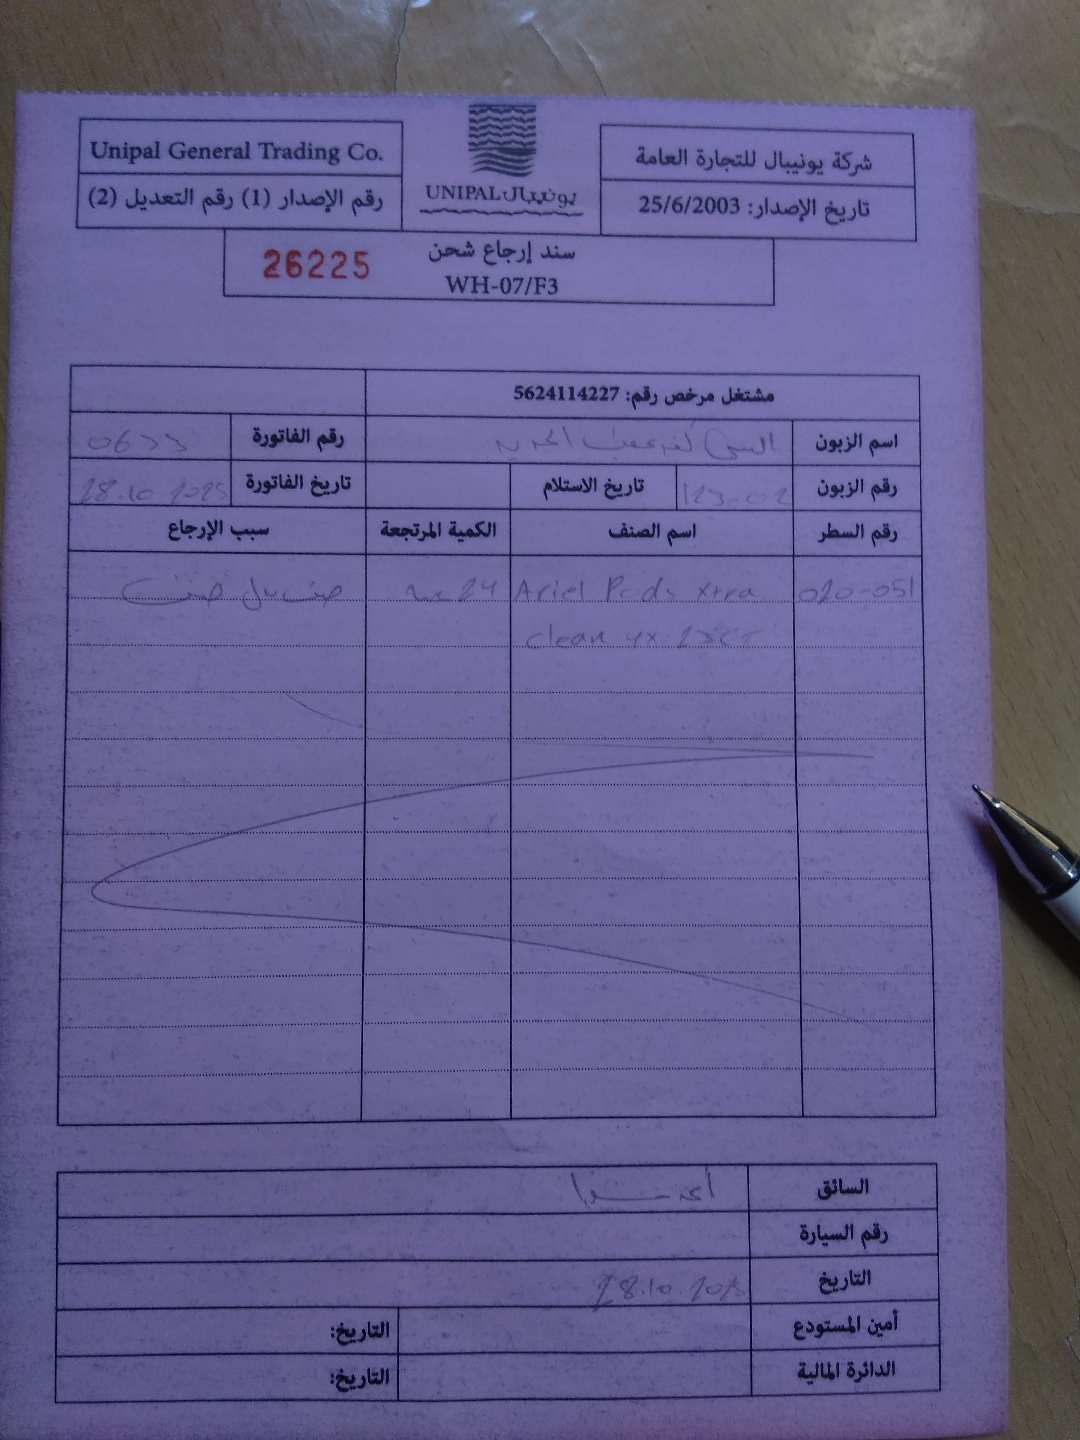 Unipal General Trading Co.
رقم الإصدار (1) رقم التعديل (2)
UNIPAL يونيبال
شركة يونيبال للتجارة العامة
تاريخ الإصدار: 25/6/2003
26225
سند إرجاع شحن
WH-07/F3
مشتغل مرخص رقم: 5624114227
اسم الزبون
رقم الفاتورة
رقم الزبون 123-02 تاريخ الاستلام
تاريخ الفاتورة 28.10.2025
رقم السطر اسم الصنف الكمية المرتجعة سبب الإرجاع
020-051 Ariel Pods xtra 24 صنف بدل صنف
clean 4x 23CT
السائق
رقم السيارة
التاريخ 28.10.2025
أمين المستودع التاريخ:
الدائرة المالية التاريخ: